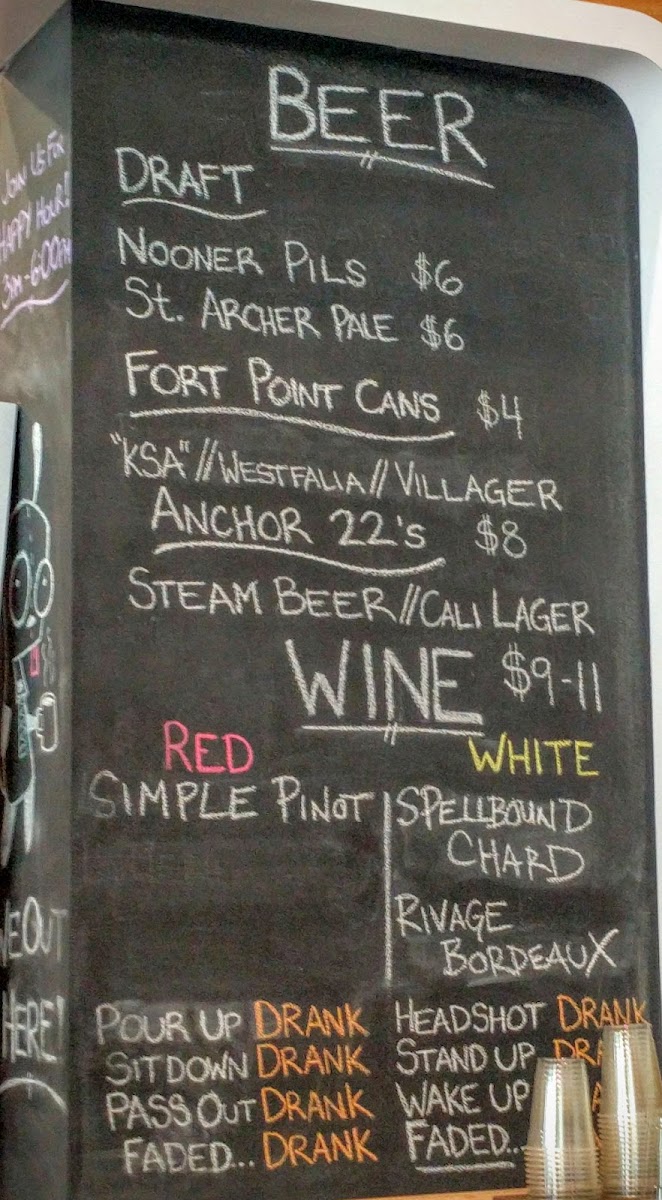 BEER
DRAFT
NOONER PILS $6
St. ARCHER PALE $6
FORT POINT CANS $4
"KSA"//WESTFALIA//VILLAGER
ANCHOR 22's $8
STEAM BEER//CALI LAGER
WINE $9-11
RED
SIMPLE PINOT
WHITE
SPELLBOUND
CHARD
RIVAGE
BORDEAUX
POUR UP DRANK
SIT DOWN DRANK
PASS OUT DRANK
FADED... DRANK
HEADSHOT DRANK
STAND UP
WAKE UP
FADED...
JOIN US FOR
HAPPY HOUR!
3PM-6:00PM
OUT
HERE!